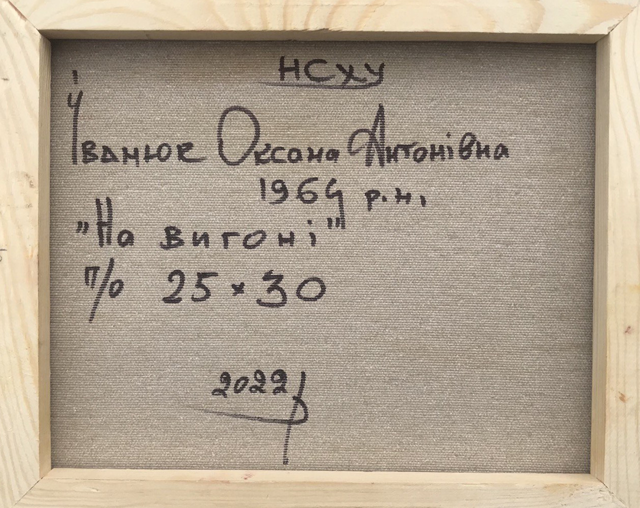 НСХУ
Іванюк Оксана Антонівна
1964 р.н.
"На вигоні"
п/о 25×30
2022р